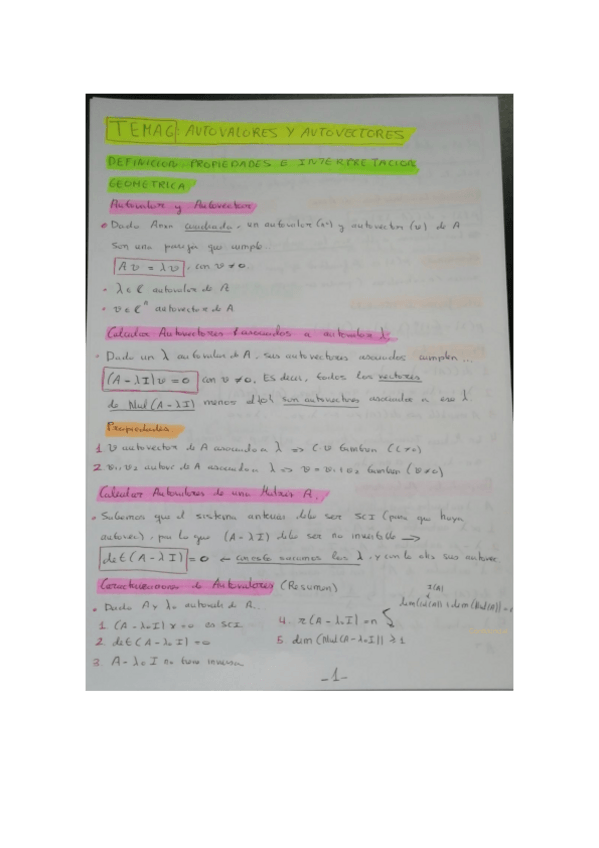 TEMA6: AUTOVALORES Y AUTOVECTORES
DEFINICION, PROPIEDADES E INTERPRETACION
GEOMETRICA
Autovalor y Autovector
• Dada Anxn cuadrada, un autovalor (λ) y autovector (v) de A
son una pareja que cumple...
Av = λv, con v ≠ 0.
• λ ∈ C autovalor de A
• v ∈ Cⁿ autovector de A
Calcular Autovectores asociados a autovalor λ
• Dado un λ autovalor de A, sus autovectores asociados cumplen...
(A - λI)v = 0 con v ≠ 0. Es decir, todos los vectores
de Nul(A - λI) menos el son autovectores asociados a ese λ.
Propiedades.
1 v autovector de A asociado a λ => c·v tambien (c ≠ 0)
2 v₁, v₂ autovec de A asociado a λ => v = v₁ + v₂ tambien (v ≠ 0)
Calcular Autovalores de una Matriz A.
• Sabemos que el sistema anterior debe ser SCI (para que haya
autovec), por lo que (A - λI) debe ser no invertible →
det(A - λI) = 0 ← con esto sacamos los λ, y con lo otro sus autovec
Caracterizaciones de Autovalores (Resumen)
• Dada A y λ₀ autovalor de A...
1. (A - λ₀I)x = 0 es SCI
2. det(A - λ₀I) = 0
3. A - λ₀I no tiene inversa
4. r(A - λ₀I) < n
r(A)
dim(Col(A)) + dim(Nul(A)) =
5. dim(Nul(A - λ₀I)) ≥ 1
-1-